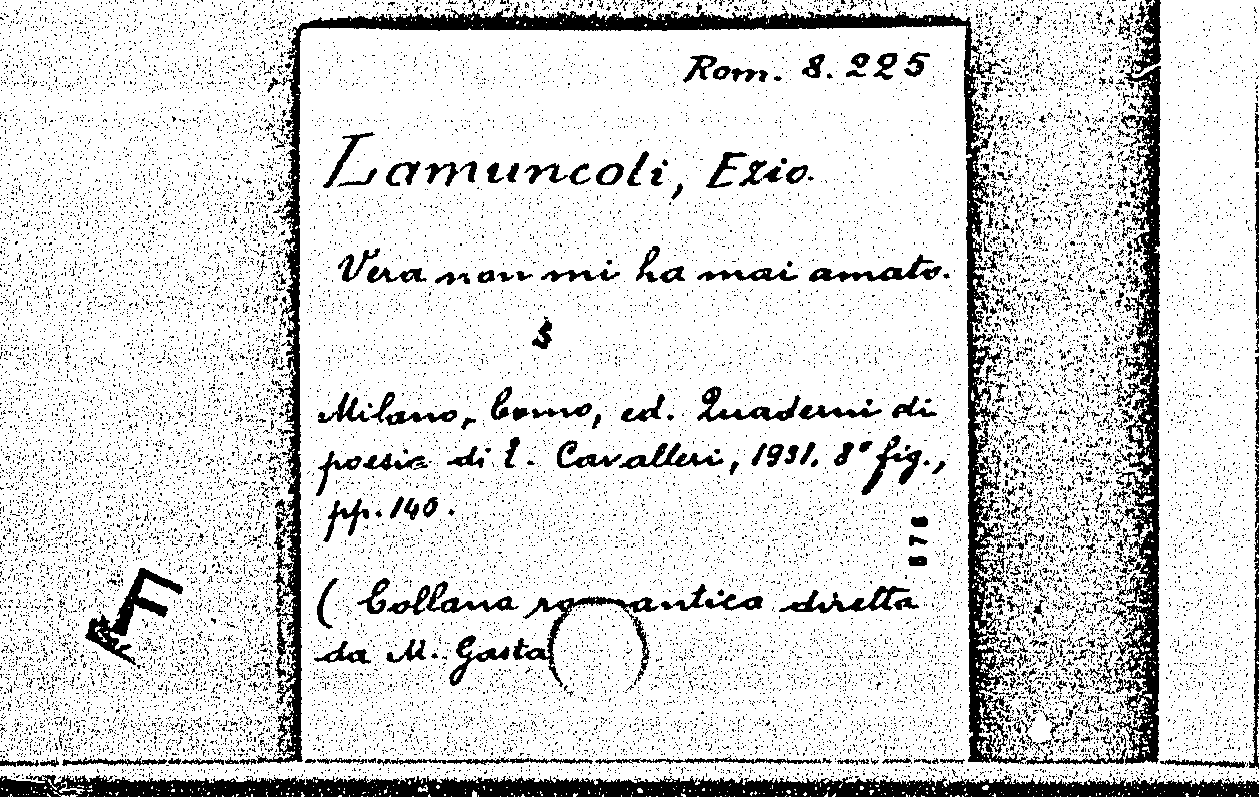 Rom. 8. 225
Lamuncoli, Ezio.
Vera non mi ha mai amato.
Milano, Como, ed. Quaderni di
poesia di E. Cavalleri, 1931. 8° fig.,
pp. 140.
678
( Collana romantica diretta
da M. Gasta
F